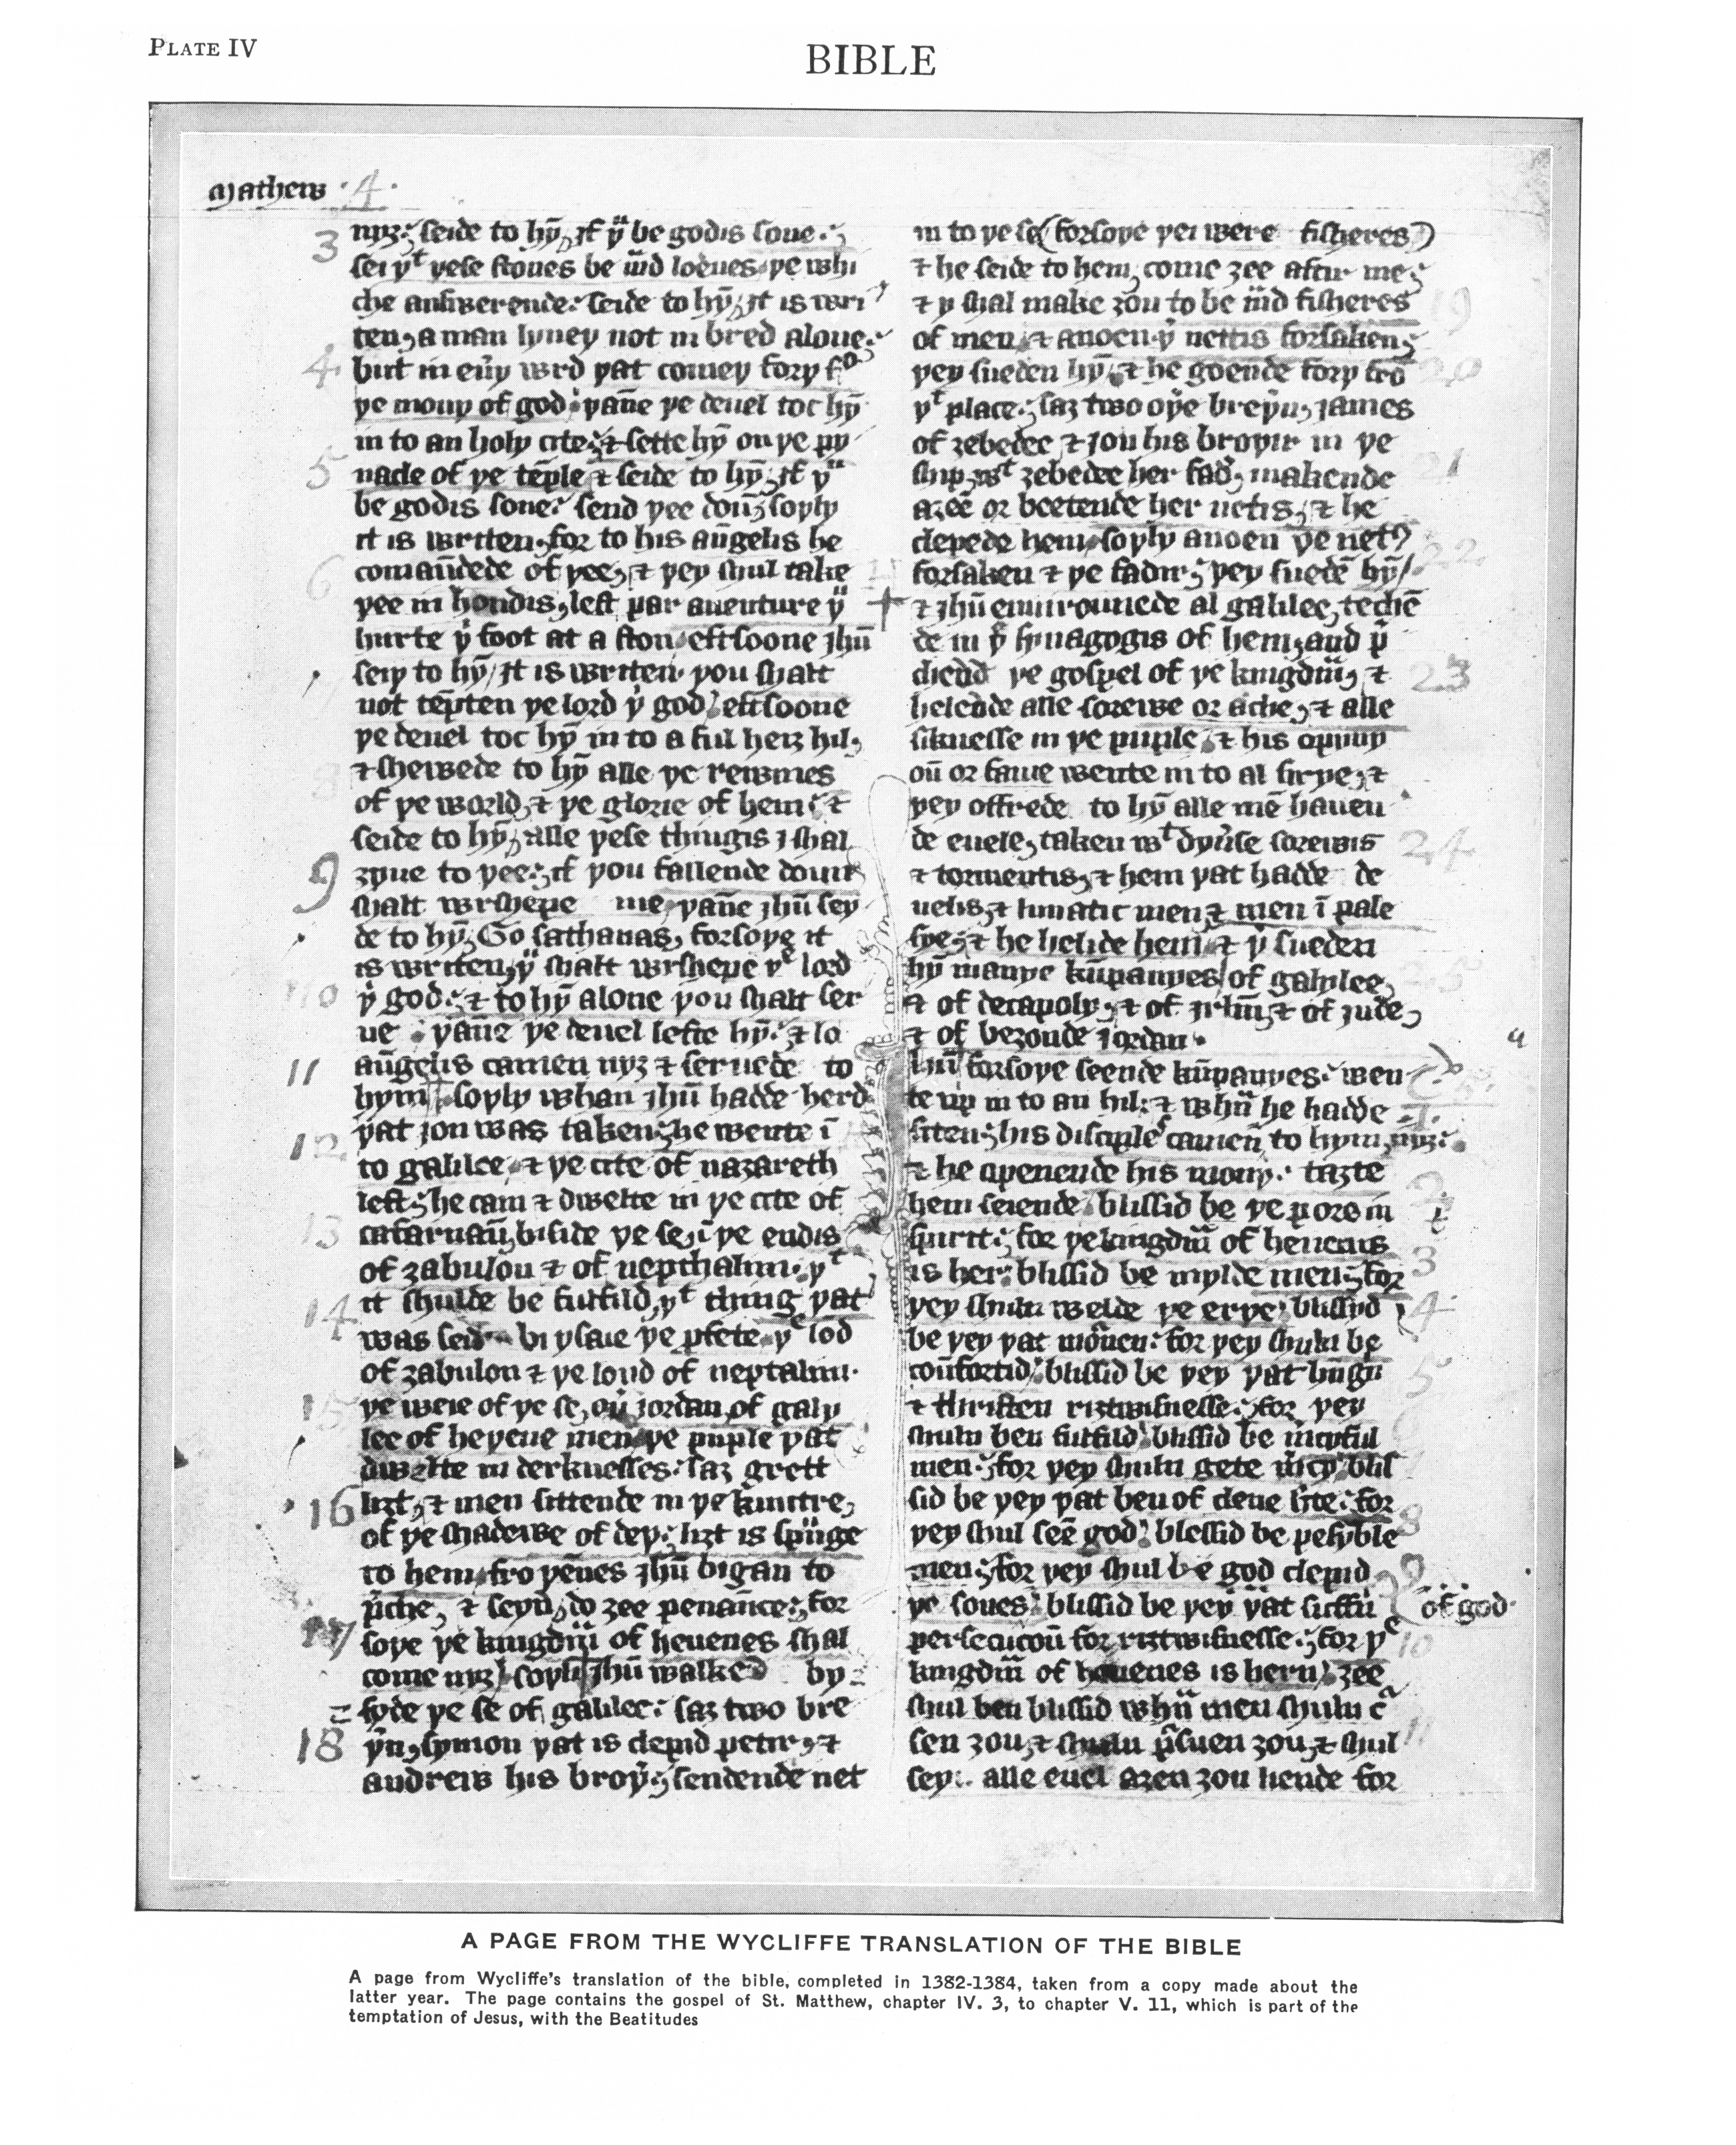 PLATE IV
BIBLE
mathew ·4·
3 nyȝ: seide to hȳ, if yu be godis sone:
sei yt yese stones be maad looues ye whi
che answerende: seide to hȳ, it is wri
ten, a man lyuey not in bred alone:
4 but in euy wrd yat comey fory fro
ye mouy of god, yāne ye deuel toc hȳ
in to an holy cite: & sette hȳ on ye py
5 nacle of ye tēple & seide to hȳ: if yu
be godis sone: send yee doun; soyly
it is writen, for to his aūgelis he
6 comaūdede of yee, & yey shul take
yee in hondis, lest par auenture yu
hurte yi foot at a ston, eftsoone ihū
seiy to hȳ, it is writen, you shalt
not tēpten ye lord yi god, eftsoone
ye deuel toc hȳ in to a ful heiȝ hil,
8 & shewede to hȳ alle ye rewmes
of ye world, & ye glorie of hem: &
seide to hȳ, alle yese thingis I shal
9 ȝyue to yee: if you fallende doun
shalt wrshepe me, yāne ihū sey
de to hȳ, Go sathanas, forsoye it
is writen, yu shalt wrshepe ye lord
10 yi god: & to hȳ alone you shalt ser
ue, yāne ye deuel lefte hȳ: & lo
11 aūgelis camen nyȝ & seruede to
hym, soyly whan ihū hadde herd
12 yat ion was taken: he wente ī
to galilee, & ye cite of nazareth
left: he cam & dwelte in ye cite of
13 cafarnaū, biside ye se, ī ye endis
of zabulon & of nepthalim, yt
14 it shulde be fulfild, yt thing yat
was seid bi ysaie ye pfete, ye lod
of zabulon & ye lond of neptalim·
15 ye weie of ye se, ou iordan, of galy
lee of heyene men, ye puple yat
dwelte in derknesses: saȝ grett
16 liȝt, & men sittende in ye kuntre,
of ye shadewe of dey: liȝt is spunge
to hem, fro yēnes ihū bigan to
pche, & seyn, do ȝee penaūce: for
17 soye ye kingdm of heuenes shal
come nyȝ, soyly ihū walked by
syde ye se of galilee: saȝ two bre
18 yn, symon yat is clepid petir, &
andrew his broy, sendende net
in to ye se (forsoye yei were fisheres)
& he seide to hem, come ȝee aftir me:
19 & y shal make ȝou to be maad fisheres
of men, & anoen yi nettis forsaken:
20 yey sueden hȳ, & he goende fory fro
yt place: saȝ two oye breyn, iames
of zebedee & ion his broyir in ye
21 ship, wt zebedee her fad, makende
aȝeē or beetende her nettis, & he
clepede hem, soyly anoen ye nett
22 forsaken & ye fadir: yey suedē hȳ
& ihū enuirounede al galilee, techē
de in ye synagogis of hem, and p
23 chēde ye gospel of ye kingdm, &
helende alle sorewe or ache, & alle
siknesse in ye puple, & his opyny
oū or fame wente in to al sirye, &
yey offrede to hȳ alle mē hauen
24 de euele, taken wt dyuse sorewis
& tormentis, & hem yat hadde de
uelis, & lunatic men, & men ī pale
sye, & he helide hem, & y sueden
25 hȳ manye kūpanyes of galylee,
& of decapoly, & of irlm, & of iude,
& of beȝonde iordan·
ihū forsoye seende kūpanyes: wen
te up in to an hil: & whan he hadde
siten: his disciples camen to hym nyȝ:
2 & he openende his mouy: taȝte
hem seiende, blissid be ye pore in
3 spirit: for ye kingdm of heuens
is her: blissid be mylde men: for
4 yey shuln welde ye erye, blissid
be yey yat mournen: for yey shuln be
5 coūfortid, blissid be yey yat hungre
& thristen riȝtwisnesse: for yey
6 shuln ben fulfild, blissid be mcyful
men: for yey shuln gete mcy, blis
sid be yey yat ben of clene hte: for
8 yey shul seē god, blessid be pesyble
9 men: for yey shul be god clepid
ye sones, blissid be yey yat suffrn
of god·
10 persecucioū for riȝtwisnesse: for ye
kingdm of heuenes is hern, ȝee
shul ben blissid whan men shuln cur
11 sen ȝou, & shuln psuen ȝou, & shul
sey alle euel aȝen ȝou liende for
A PAGE FROM THE WYCLIFFE TRANSLATION OF THE BIBLE
A page from Wycliffe's translation of the bible, completed in 1382-1384, taken from a copy made about the
latter year. The page contains the gospel of St. Matthew, chapter IV. 3, to chapter V. 11, which is part of the
temptation of Jesus, with the Beatitudes